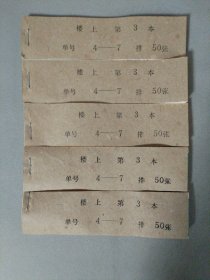 楼上第3本
单号 4—7 排 50张
楼上第3本
单号 4—7 排 50张
楼上第3本
单号 4—7 排 50张
楼上第3本
单号 4—7 排 50张
楼上第3本
单号 4—7 排 50张